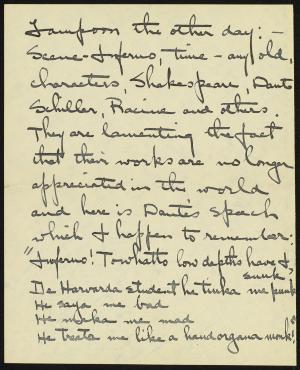 Lampoon the other day: —
Scene - Inferno, time - any old,
characters, Shakespeare, Dante
Schiller, Racine and others.
They are lamenting the fact
that their works are no longer
appreciated in the world
and here is Dante's speech
which I happen to remember:
"Inferno! To whatta low depths have I
sunk!
De Harvarda student he tinka me punk
He saya me bad
He maka me mad
He treata me like a handorgana monk!"